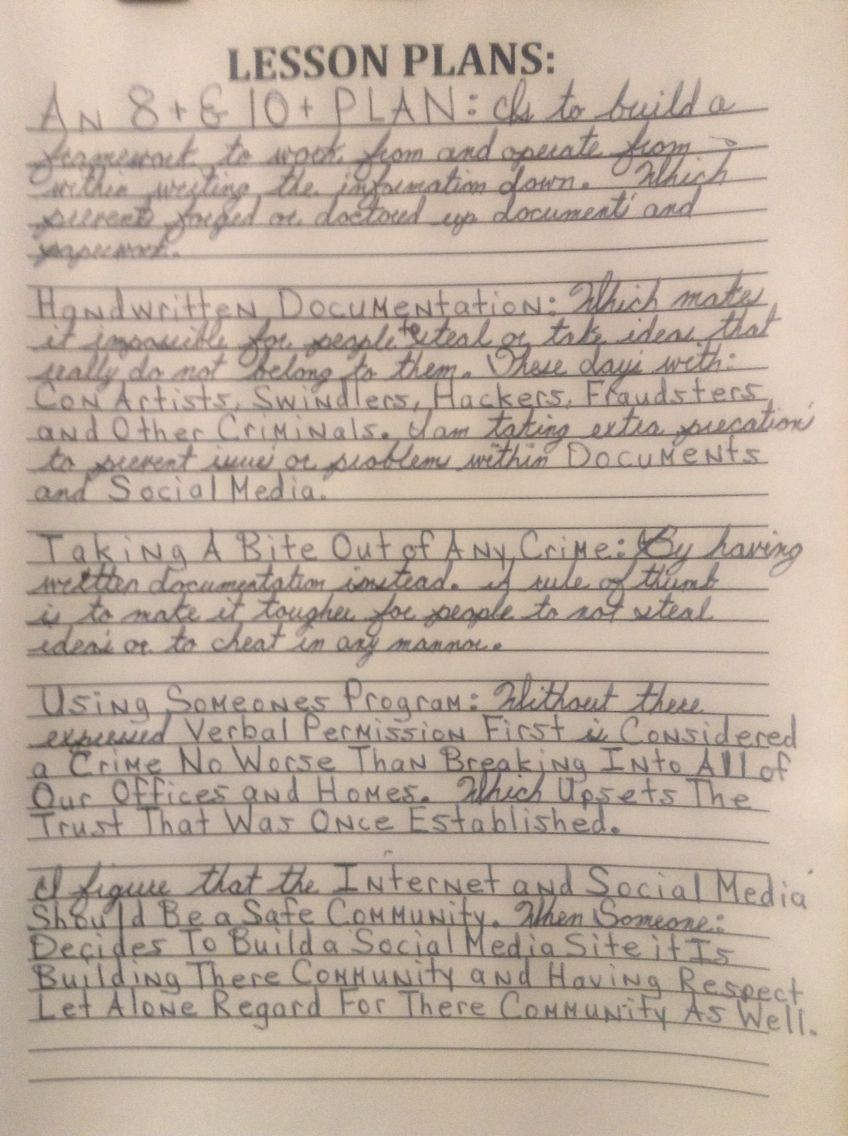 LESSON PLANS:
AN 8+ & 10+ PLAN: Is to build a
framework to work from and operate from
within writing the information down. Which
prevents forged or doctored up documents and
paperwork.
Handwritten Documentation: Which makes
it impossible for people to steal or take ideas that
really do not belong to them. These days with:
Con Artists, Swindlers, Hackers, Fraudsters
and Other Criminals. I am taking extra precations
to prevent issues or problems within Documents
and Social Media.
Taking A Bite Out of Any Crime: By having
written documentation instead. A rule of thumb
is to make it tougher for people to not steal
ideas or to cheat in any mannor.
Using Someones Program: Without there
expressed Verbal Permission First is Considered
a Crime No Worse Than Breaking Into All of
Our Offices and Homes. Which Upsets The
Trust That Was Once Established.
I figure that the Internet and Social Media
Should Be a Safe Community. When Someone:
Decides To Build a Social Media Site it Is
Building There Community and Having Respect
Let Alone Regard For There Community As Well.